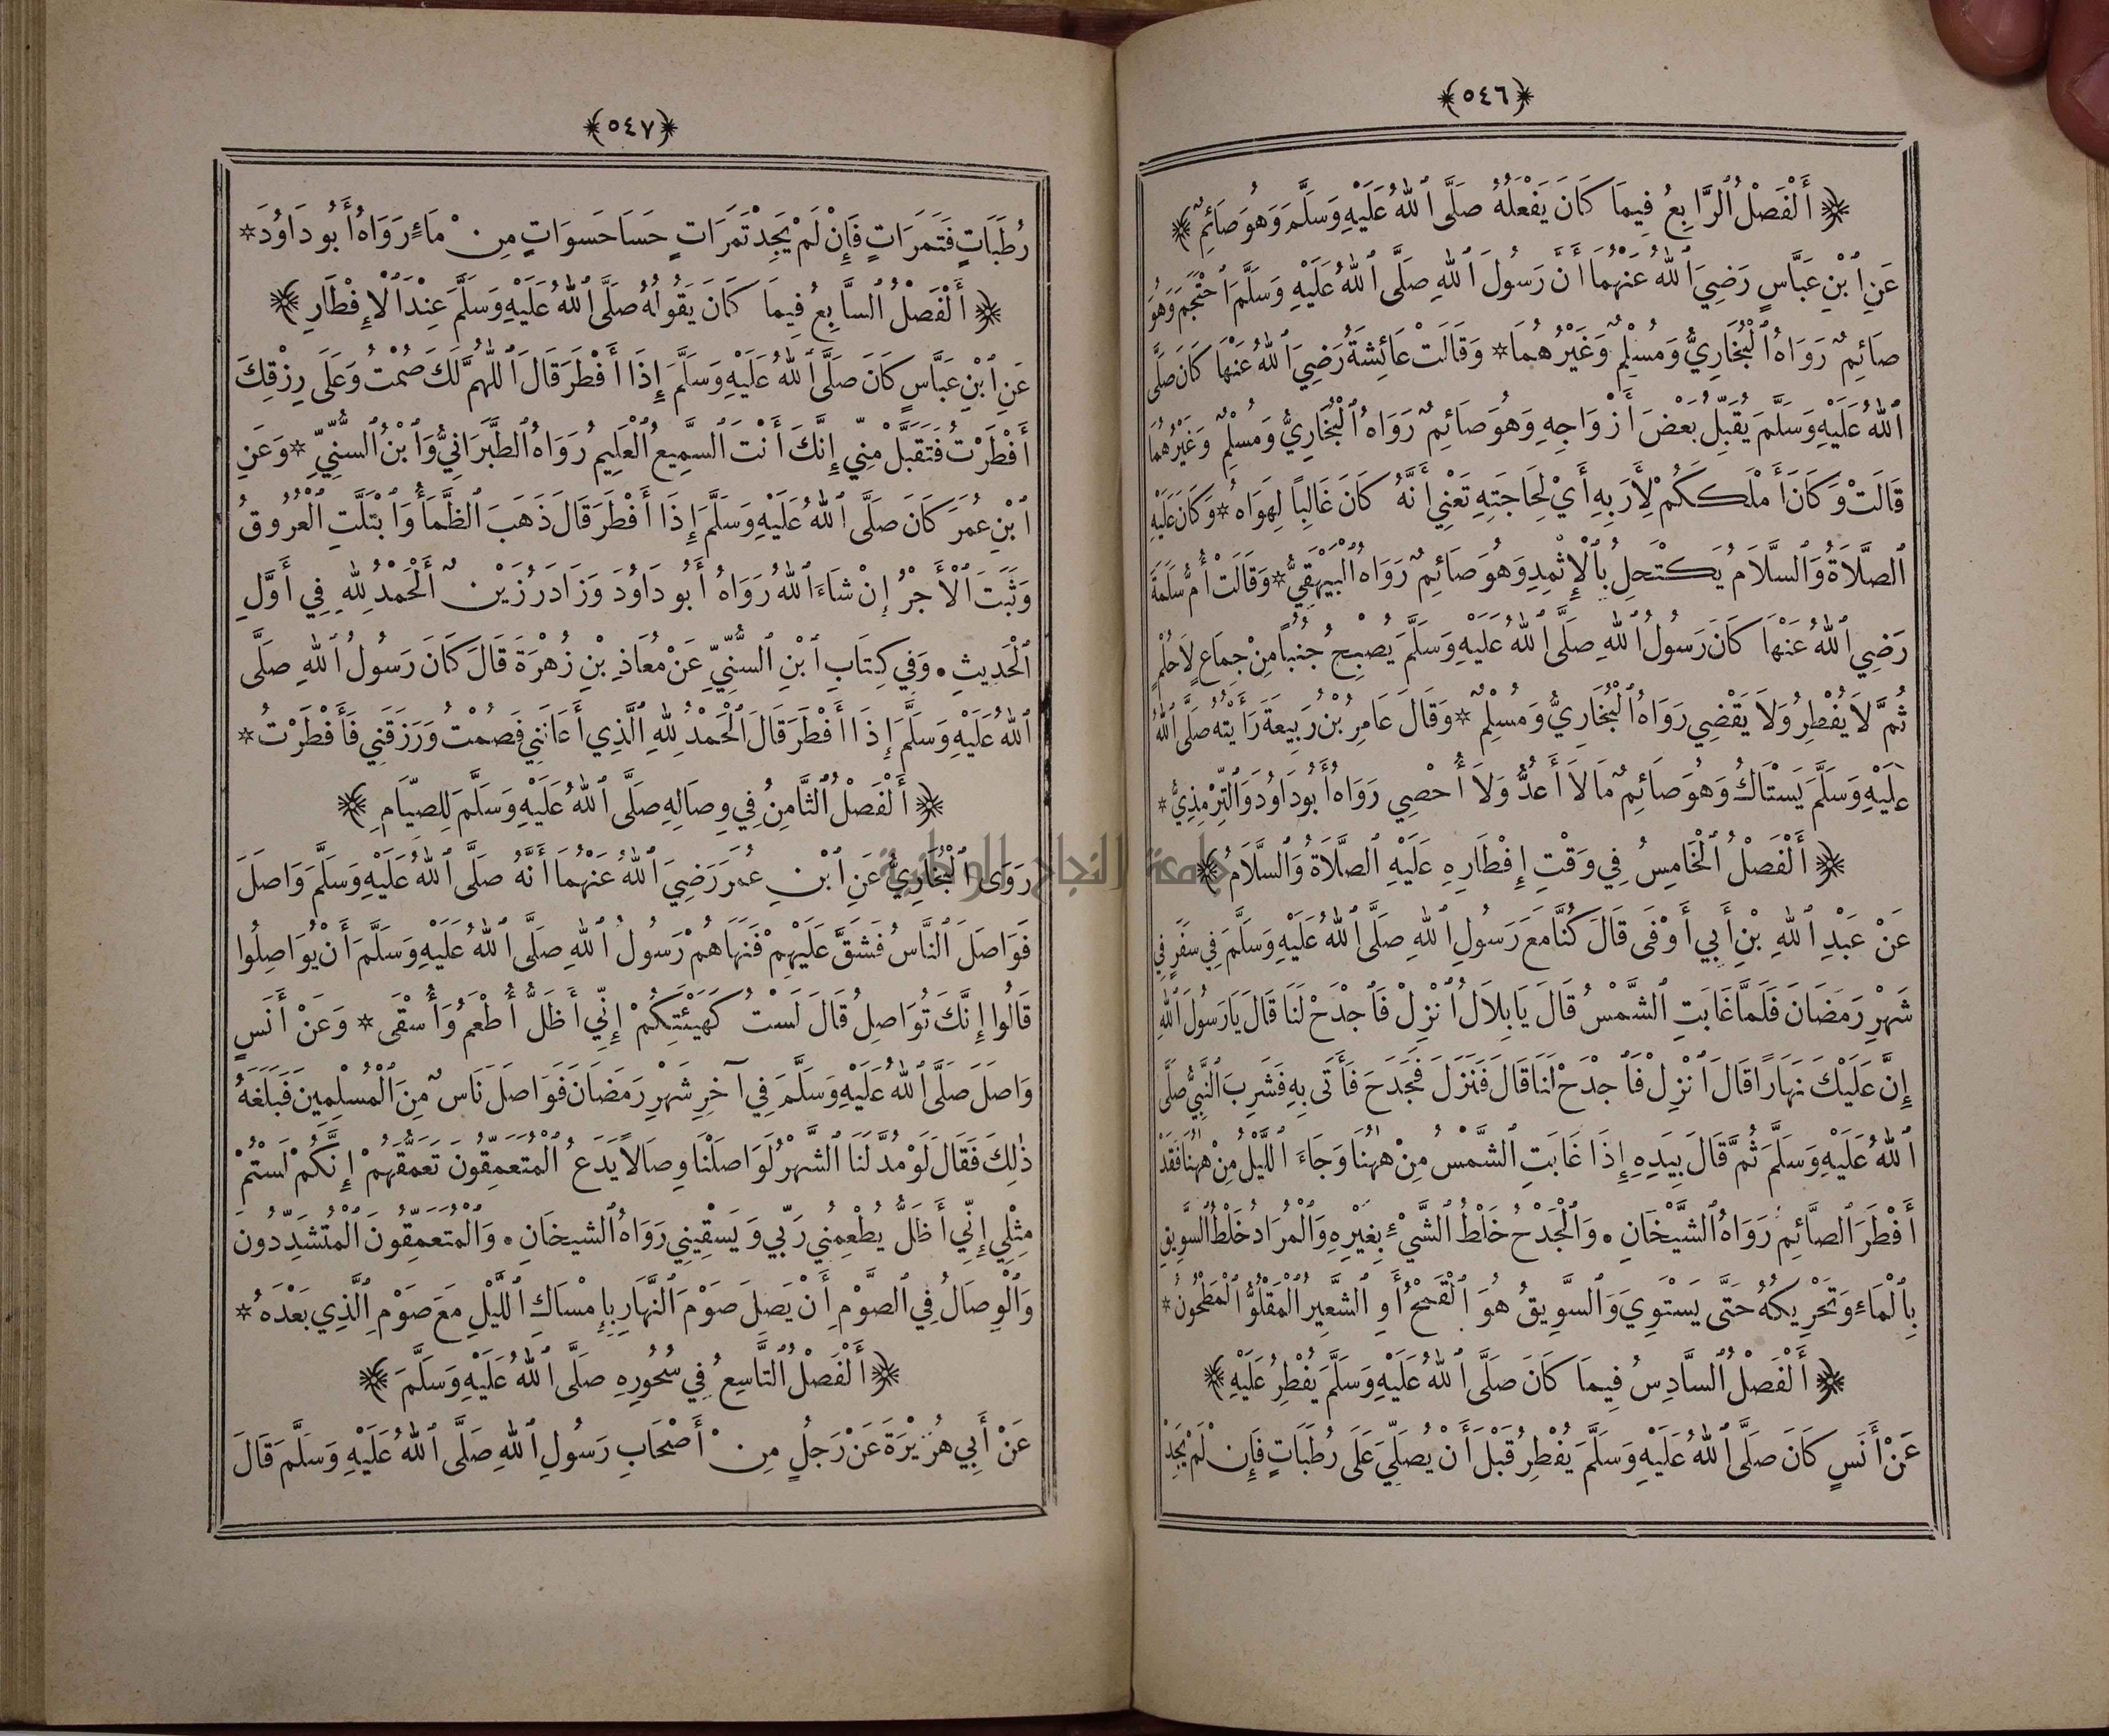 ﴿٥٤٦﴾
﴿ أَلْفَصْلُ ٱلرَّابِعُ فِيمَا كَانَ يَفْعَلُهُ صَلَّى ٱللهُ عَلَيْهِ وَسَلَّمَ وَهُوَ صَائِمٌ ﴾
عَنِ ٱبْنِ عَبَّاسٍ رَضِيَ ٱللهُ عَنْهُمَا أَنَّ رَسُولَ ٱللهِ صَلَّى ٱللهُ عَلَيْهِ وَسَلَّمَ ٱحْتَجَمَ وَهُوَ
صَائِمٌ رَوَاهُ ٱلْبُخَارِيُّ وَمُسْلِمٌ وَغَيْرُهُمَا * وَقَالَتْ عَائِشَةُ رَضِيَ ٱللهُ عَنْهَا كَانَ صَلَّى
ٱللهُ عَلَيْهِ وَسَلَّمَ يُقَبِّلُ بَعْضَ أَزْوَاجِهِ وَهُوَ صَائِمٌ رَوَاهُ ٱلْبُخَارِيُّ وَمُسْلِمٌ وَغَيْرُهُمَا
قَالَتْ وَكَانَ أَمْلَكَكُمْ لِأَرَبِهِ أَيْ لِحَاجَتِهِ تَعْنِي أَنَّهُ كَانَ غَالِبًا لِهَوَاهُ * وَكَانَ عَلَيْهِ
ٱلصَّلَاةُ وَٱلسَّلَامُ يَكْتَحِلُ بِٱلْإِثْمِدِ وَهُوَ صَائِمٌ رَوَاهُ ٱلْبَيْهَقِيُّ * وَقَالَتْ أُمُّ سَلَمَةَ
رَضِيَ ٱللهُ عَنْهَا كَانَ رَسُولُ ٱللهِ صَلَّى ٱللهُ عَلَيْهِ وَسَلَّمَ يُصْبِحُ جُنُبًا مِنْ جِمَاعٍ لَا حُلْمٍ
ثُمَّ لَا يُفْطِرُ وَلَا يَقْضِي رَوَاهُ ٱلْبُخَارِيُّ وَمُسْلِمٌ * وَقَالَ عَامِرُ بْنُ رَبِيعَةَ رَأَيْتُهُ صَلَّى ٱللهُ
عَلَيْهِ وَسَلَّمَ يَسْتَاكُ وَهُوَ صَائِمٌ مَا لَا أَعُدُّ وَلَا أُحْصِي رَوَاهُ أَبُو دَاوُدَ وَٱلتِّرْمِذِيُّ *
﴿ أَلْفَصْلُ ٱلْخَامِسُ فِي وَقْتِ إِفْطَارِهِ عَلَيْهِ ٱلصَّلَاةُ وَٱلسَّلَامُ ﴾
عَنْ عَبْدِ ٱللهِ بْنِ أَبِي أَوْفَى قَالَ كُنَّا مَعَ رَسُولِ ٱللهِ صَلَّى ٱللهُ عَلَيْهِ وَسَلَّمَ فِي سَفَرٍ فِي
شَهْرِ رَمَضَانَ فَلَمَّا غَابَتِ ٱلشَّمْسُ قَالَ يَا بِلَالُ ٱنْزِلْ فَٱجْدَحْ لَنَا قَالَ يَا رَسُولَ ٱللهِ
إِنَّ عَلَيْكَ نَهَارًا قَالَ ٱنْزِلْ فَٱجْدَحْ لَنَا قَالَ فَنَزَلَ فَجَدَحَ فَأَتَى بِهِ فَشَرِبَ ٱلنَّبِيُّ صَلَّى
ٱللهُ عَلَيْهِ وَسَلَّمَ ثُمَّ قَالَ بِيَدِهِ إِذَا غَابَتِ ٱلشَّمْسُ مِنْ هٰهُنَا وَجَاءَ ٱللَّيْلُ مِنْ هٰهُنَا فَقَدْ
أَفْطَرَ ٱلصَّائِمُ رَوَاهُ ٱلشَّيْخَانِ • وَٱلْجَدْحُ خَلْطُ ٱلشَّيْءِ بِغَيْرِهِ وَٱلْمُرَادُ خَلْطُ ٱلسَّوِيقِ
بِٱلْمَاءِ وَتَحْرِيكُهُ حَتَّى يَسْتَوِيَ وَٱلسَّوِيقُ هُوَ ٱلْقَمْحُ أَوِ ٱلشَّعِيرُ ٱلْمَقْلُوُّ ٱلْمَطْحُونُ *
﴿ أَلْفَصْلُ ٱلسَّادِسُ فِيمَا كَانَ صَلَّى ٱللهُ عَلَيْهِ وَسَلَّمَ يُفْطِرُ عَلَيْهِ ﴾
عَنْ أَنَسٍ كَانَ صَلَّى ٱللهُ عَلَيْهِ وَسَلَّمَ يُفْطِرُ قَبْلَ أَنْ يُصَلِّيَ عَلَى رُطَبَاتٍ فَإِنْ لَمْ يَجِدْ
﴿٥٤٧﴾
رُطَبَاتٍ فَتَمَرَاتٍ فَإِنْ لَمْ يَجِدْ تَمَرَاتٍ حَسَا حَسَوَاتٍ مِنْ مَاءٍ رَوَاهُ أَبُو دَاوُدَ *
﴿ أَلْفَصْلُ ٱلسَّابِعُ فِيمَا كَانَ يَقُولُهُ صَلَّى ٱللهُ عَلَيْهِ وَسَلَّمَ عِنْدَ ٱلْإِفْطَارِ ﴾
عَنِ ٱبْنِ عَبَّاسٍ كَانَ صَلَّى ٱللهُ عَلَيْهِ وَسَلَّمَ إِذَا أَفْطَرَ قَالَ ٱللّٰهُمَّ لَكَ صُمْتُ وَعَلَى رِزْقِكَ
أَفْطَرْتُ فَتَقَبَّلْ مِنِّي إِنَّكَ أَنْتَ ٱلسَّمِيعُ ٱلْعَلِيمُ رَوَاهُ ٱلطَّبَرَانِيُّ وَٱبْنُ ٱلسُّنِّيِّ * وَعَنِ
ٱبْنِ عُمَرَ كَانَ صَلَّى ٱللهُ عَلَيْهِ وَسَلَّمَ إِذَا أَفْطَرَ قَالَ ذَهَبَ ٱلظَّمَأُ وَٱبْتَلَّتِ ٱلْعُرُوقُ
وَثَبَتَ ٱلْأَجْرُ إِنْ شَاءَ ٱللهُ رَوَاهُ أَبُو دَاوُدَ وَزَادَ رُزَيْنٌ أَلْحَمْدُ لِلهِ فِي أَوَّلِ
ٱلْحَدِيثِ • وَفِي كِتَابِ ٱبْنِ ٱلسُّنِّيِّ عَنْ مُعَاذِ بْنِ زُهْرَةَ قَالَ كَانَ رَسُولُ ٱللهِ صَلَّى
ٱللهُ عَلَيْهِ وَسَلَّمَ إِذَا أَفْطَرَ قَالَ ٱلْحَمْدُ لِلهِ ٱلَّذِي أَعَانَنِي فَصُمْتُ وَرَزَقَنِي فَأَفْطَرْتُ *
﴿ أَلْفَصْلُ ٱلثَّامِنُ فِي وِصَالِهِ صَلَّى ٱللهُ عَلَيْهِ وَسَلَّمَ لِلصِّيَامِ ﴾
رَوَى ٱلْبُخَارِيُّ عَنِ ٱبْنِ عُمَرَ رَضِيَ ٱللهُ عَنْهُمَا أَنَّهُ صَلَّى ٱللهُ عَلَيْهِ وَسَلَّمَ وَاصَلَ
فَوَاصَلَ ٱلنَّاسُ فَشَقَّ عَلَيْهِمْ فَنَهَاهُمْ رَسُولُ ٱللهِ صَلَّى ٱللهُ عَلَيْهِ وَسَلَّمَ أَنْ يُوَاصِلُوا
قَالُوا إِنَّكَ تُوَاصِلُ قَالَ لَسْتُ كَهَيْئَتِكُمْ إِنِّي أَظَلُّ أُطْعَمُ وَأُسْقَى * وَعَنْ أَنَسٍ
وَاصَلَ صَلَّى ٱللهُ عَلَيْهِ وَسَلَّمَ فِي آخِرِ شَهْرِ رَمَضَانَ فَوَاصَلَ نَاسٌ مِنَ ٱلْمُسْلِمِينَ فَبَلَغَهُ
ذٰلِكَ فَقَالَ لَوْ مُدَّ لَنَا ٱلشَّهْرُ لَوَاصَلْنَا وِصَالًا يَدَعُ ٱلْمُتَعَمِّقُونَ تَعَمُّقَهُمْ إِنَّكُمْ لَسْتُمْ
مِثْلِي إِنِّي أَظَلُّ يُطْعِمُنِي رَبِّي وَيَسْقِينِي رَوَاهُ ٱلشَّيْخَانِ • وَٱلْمُتَعَمِّقُونَ ٱلْمُتَشَدِّدُونَ
وَٱلْوِصَالُ فِي ٱلصَّوْمِ أَنْ يَصِلَ صَوْمَ ٱلنَّهَارِ بِإِمْسَاكِ ٱللَّيْلِ مَعَ صَوْمِ ٱلَّذِي بَعْدَهُ *
﴿ أَلْفَصْلُ ٱلتَّاسِعُ فِي سُحُورِهِ صَلَّى ٱللهُ عَلَيْهِ وَسَلَّمَ ﴾
عَنْ أَبِي هُرَيْرَةَ عَنْ رَجُلٍ مِنْ أَصْحَابِ رَسُولِ ٱللهِ صَلَّى ٱللهُ عَلَيْهِ وَسَلَّمَ قَالَ
جامعة النجاح الوطنية